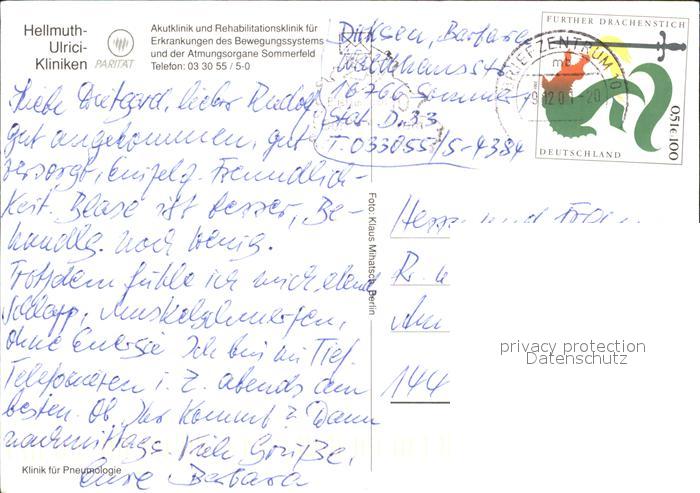 Hellmuth-
Ulrici-
Kliniken
PARITÄT
Akutklinik und Rehabilitationsklinik für
Erkrankungen des Bewegungssystems
und der Atmungsorgane Sommerfeld
Telefon: 03 30 55 / 5-0
Dirksen, Barbara
Waldhausstr.
16766 Sommerf
Stat. D 33
T. 033055/5-4384
FURTHER DRACHENSTICH
0,51€ 100
DEUTSCHLAND
BRIEFZENTRUM 10
mb
-20
Liebe Dietgard, lieber Rudolf,
gut angekommen, gut
versorgt, Freundlich-
keit. Blase ist besser, Be-
handlg. noch wenig.
Trotzdem fühle ich mich elend,
schlapp, Muskelschmerzen,
ohne Energie. Ich bin im Tief.
Telefonieren i. Z. abends am
besten. Ob Ihr kommt? Dann
nachmittags. Viele Grüße,
Eure Barbara
Klinik für Pneumologie
Foto: Klaus Mihatsch, Berlin
Herrn und Frau
R. u
Am
144
privacy protection
Datenschutz